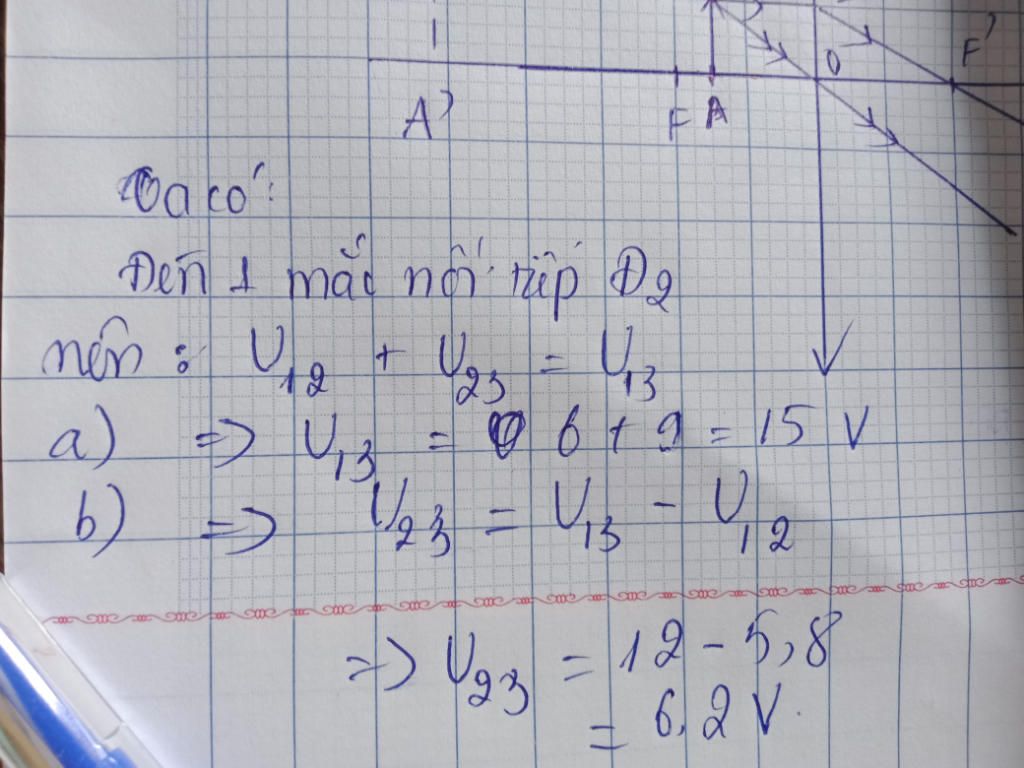 F'
O
A' F A
Ta có:
Đèn 1 mắc nối tiếp Đ2
nên: U12 + U23 = U13
a) => U13 = 6 + 9 = 15 V
b) => U23 = U13 - U12
=> U23 = 12 - 5,8
= 6,2 V.